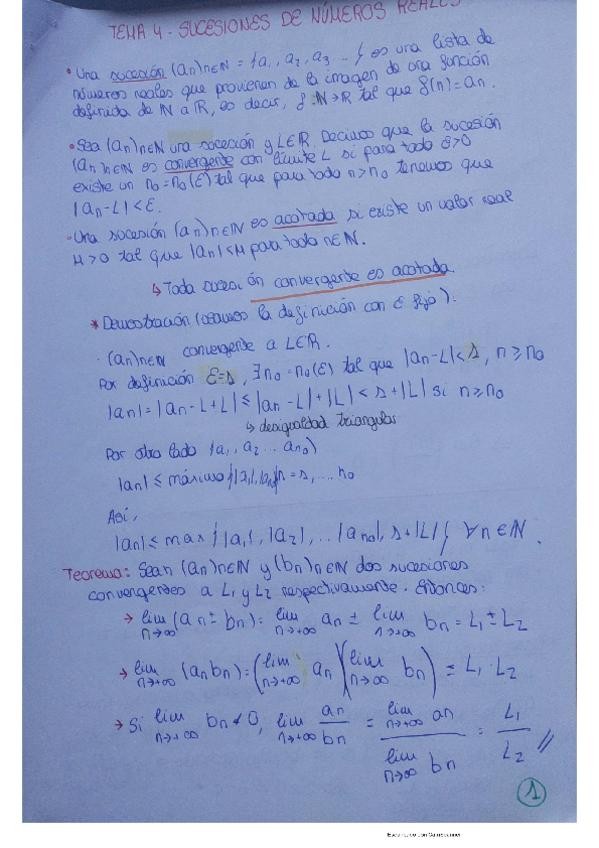 TEMA 4 - SUCESIONES DE NÚMEROS REALES
• Una sucesión (an)n∈N = {a1, a2, a3 ...} es una lista de
números reales que provienen de la imagen de una función
definida de N a R, es decir, f: N→R tal que f(n)=an.
• Sea (an)n∈N una sucesión y L∈R. Decimos que la sucesión
(an)n∈N es convergente con límite L si para todo ε>0
existe un n0=n0(ε) tal que para todo n>n0 tenemos que
|an-L|<ε.
• Una sucesión (an)n∈N es acotada si existe un valor real
M>0 tal que |an|<M para todo n∈N.
↳ Toda sucesión convergente es acotada.
* Demostración (usamos la definición con ε fijo).
· (an)n∈N convergente a L∈R.
Por definición ε=1, ∃n0=n0(ε) tal que |an-L|<1, n≥n0
|an|=|an-L+L|≤|an-L|+|L|<1+|L| si n≥n0
↳ desigualdad triangular
Por otro lado {a1, a2 ... an0}
|an|≤ máximo {|a1|, |an|} n=1,... n0
Así,
|an|≤max{|a1|, |a2|, ... |an0|, 1+|L|} ∀n∈N.
Teorema: Sean (an)n∈N y (bn)n∈N dos sucesiones
convergentes a L1 y L2 respectivamente. Entonces:
→ lim n→∞ (an ± bn) = lim n→+∞ an ± lim n→∞ bn = L1 ± L2
→ lim n→+∞ (an bn) = (lim n→+∞ an)(lim n→∞ bn) = L1 · L2
→ Si lim n→+∞ bn ≠ 0, lim n→+∞ an/bn = lim n→+∞ an / lim n→∞ bn = L1/L2 //
1